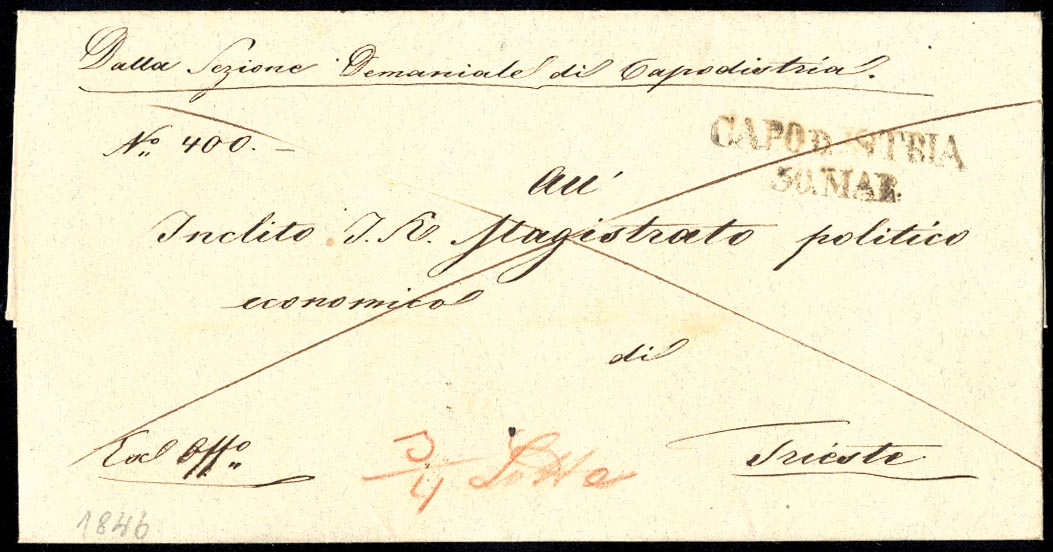 Dalla Sezione Demaniale di Capodistria.
No. 400.
CAPODISTRIA
30. MAR.
All'
Inclito I. R. Magistrato politico
economico
di
Trieste
Ex Offo.
3/4
1846